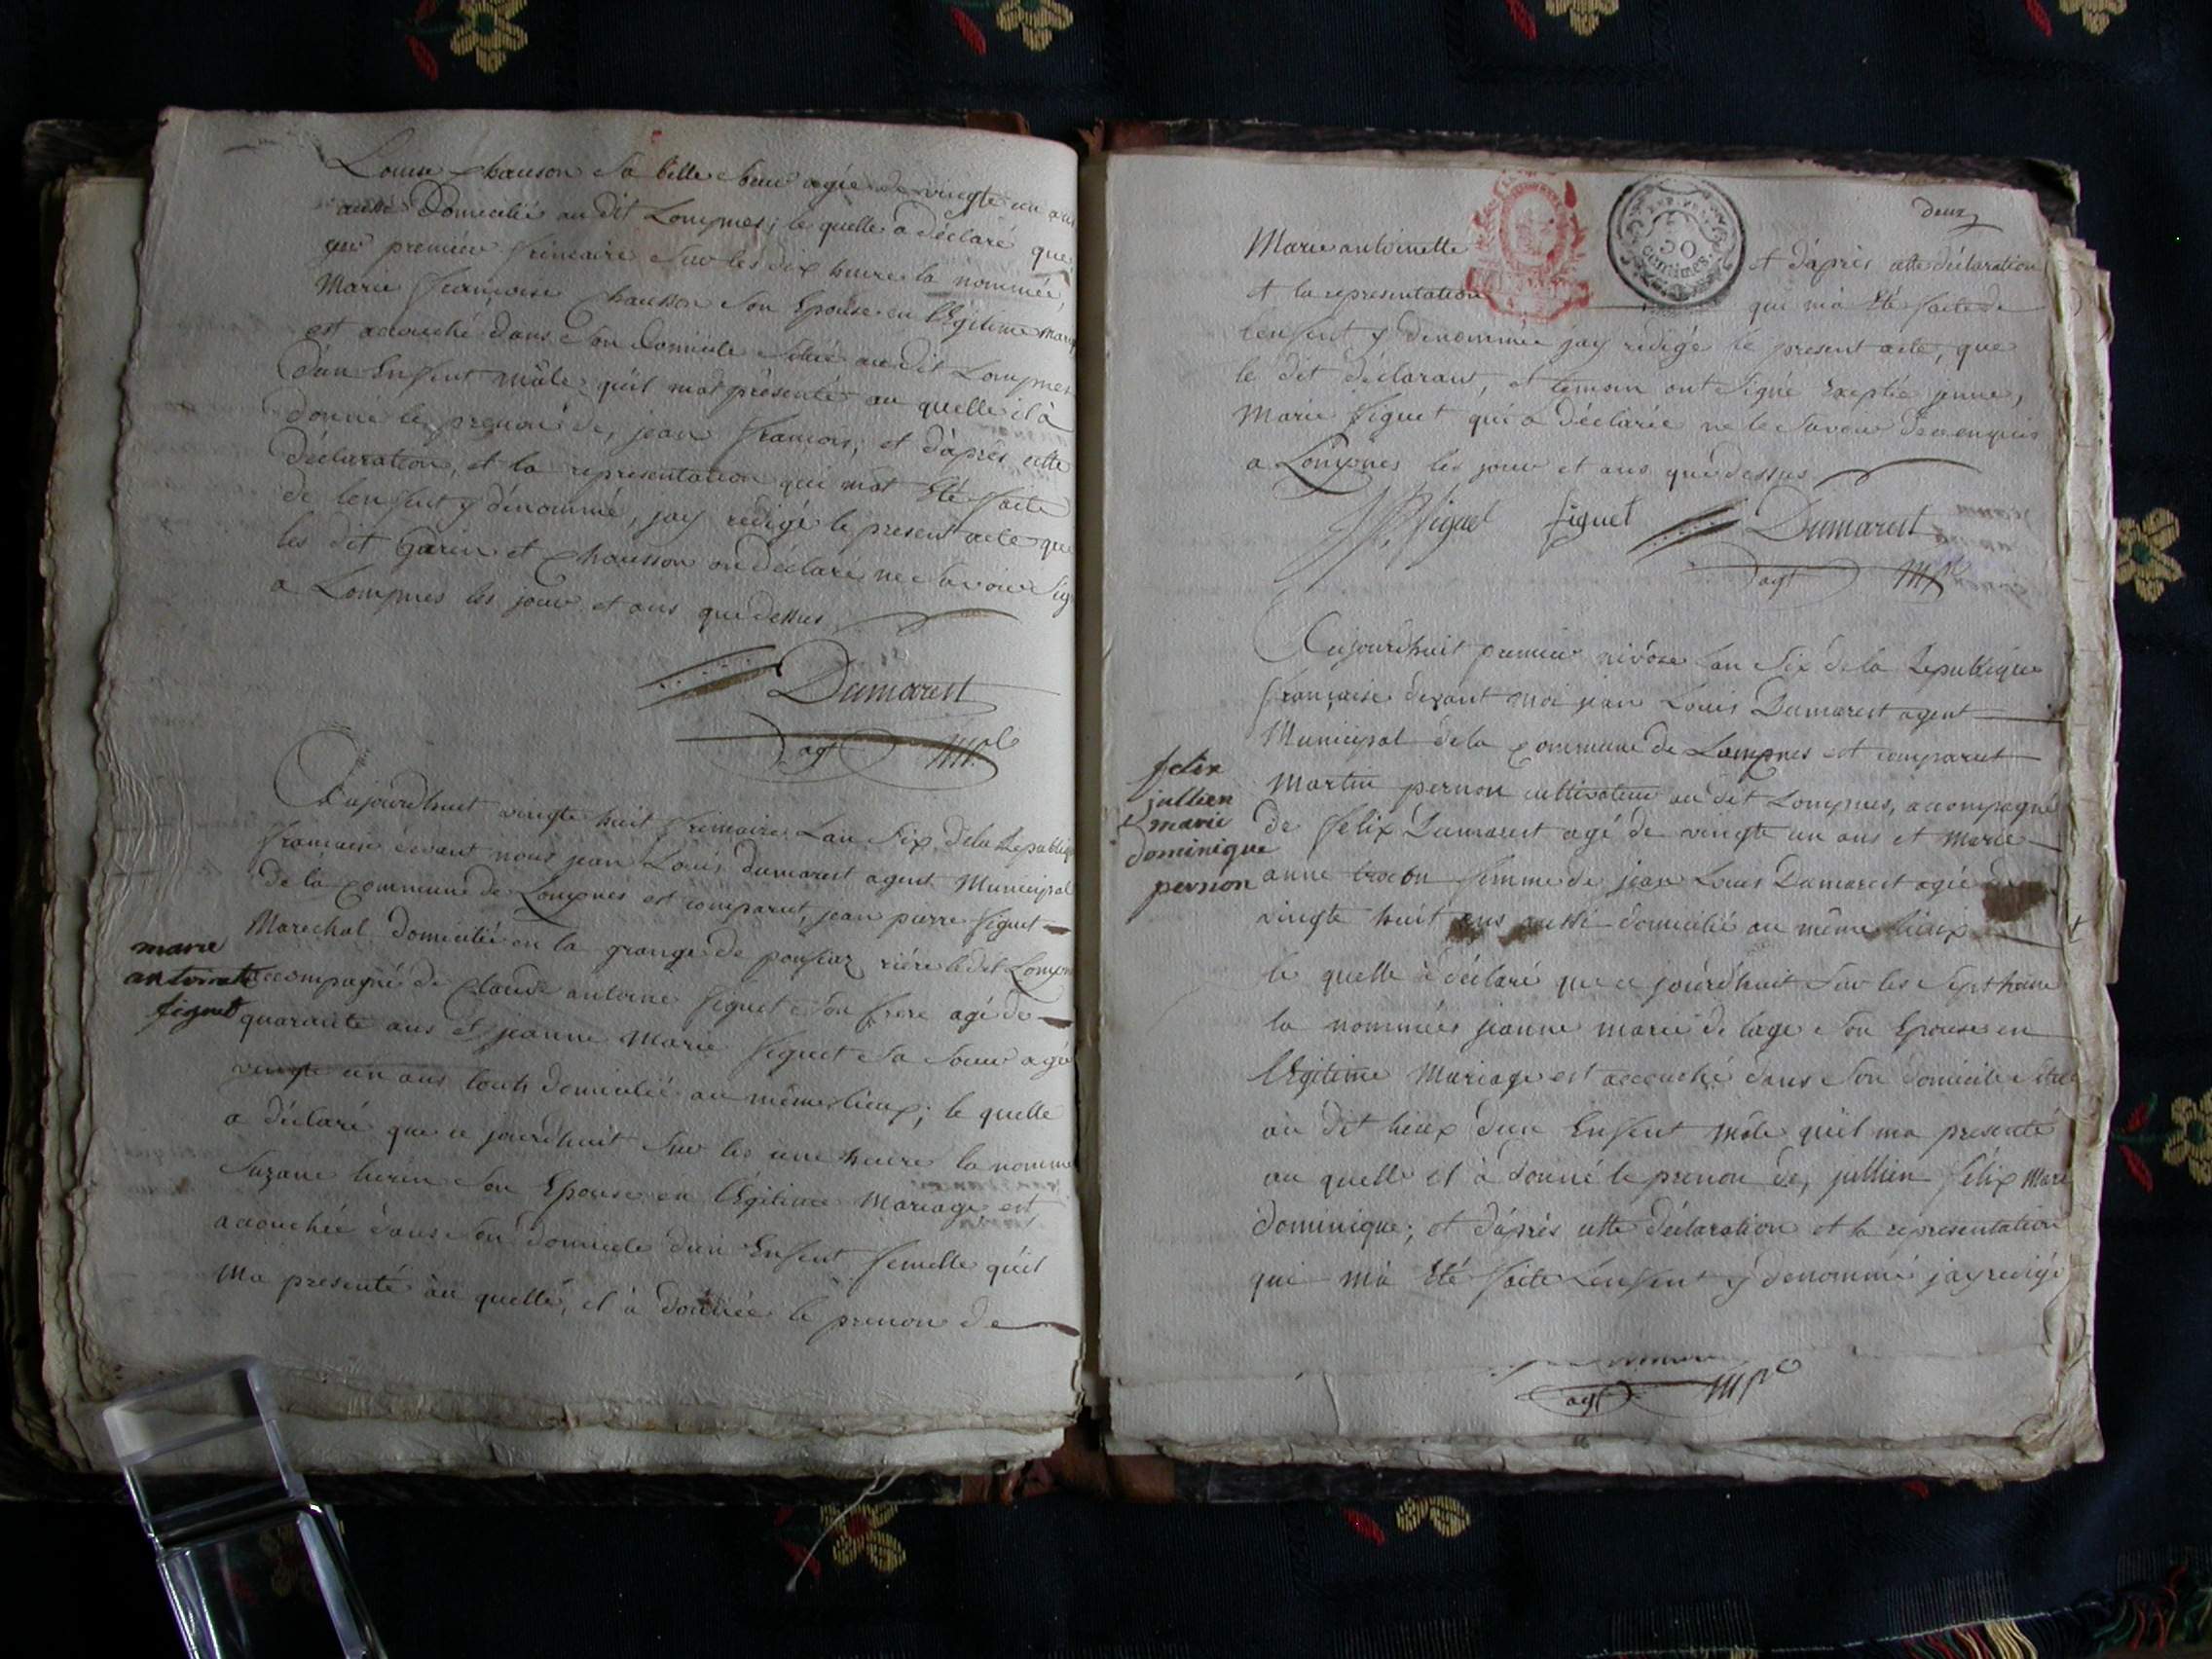 Louise Chauson Sa belle Soeur agée de vingte un ans
aussi Domicilié au dit Lompnes; le quelle a déclaré que
premiere frimaire Sur les dix heure la nommée
Marie françoise Chausson Son Epouse en lEgitime
est acouché dans Son domicile Situé au dit Lompnes
d'un Enfent mâle qu'il mat présenté au quelle il à
donné le prenon de, jean françois; et d'àprès cette
déclaration, et la representation qui mat Eté faite
de lenfent y dénommé, jay redigé le present acte que
les dit Garin et Chausson on déclaré ne Savoir
a Lompnes les jour et ans que dessus
Dumarest
agt Mpl
Aujourdhuit vingte huit frimaire Lan Six dela Republiq
francaise devant nous jean Louis dumarest agent Municipal
de la Commune de Lompnes est comparut, jean pierre figuet
Marechal domicilié en la grange de rière ledit
marie
antoinette
figuet
accompagné de Claude antoine figuet Son frere agé de
quarante ans et jeanne Marie figuet Sa Soeur agé
vingte un ans touts domicilié au même lieux; le quelle
a déclaré que ce jourdhuit Sur les une heure la
Suzane Son Epouse en lEgitime Mariage est
acouchée dans Son domicile d'un Enfent femelle qu'il
Ma presenté au quelle, il à donnée le prenon de
deux
Marie antoinette et d'àprès cette déclaration
30 centimes.
et la representation qui mà Eté faite de
lenfent y dénommée jay redigé le present acte, que
le dit déclarant, et temoin ont Signé Exeptée jeanne,
Marie figuet qui a déclarée ne le Savoir de ce enquis
a Lompnes les jour et ans que dessus
figuet figuet Dumarest
agt Mpl
Aujourdhuit premier nivôse Lan Six de la Republique
française devant moi jean Louis Dumarest agent
Municipal dela Commune de Lompnes est comparut
felix
jullien
marie
dominique
pernon
Martin pernon cultivateur au dit Lompnes, acompagné
de felix Dumarest agé de vingte un ans et Marie
anne femme de jean Louis Dumarest agée de
vingte huit ans aussi domicilié au même lieux
le quelle à déclaré que ce jourdhuit Sur les Sept heure
la nommées jeanne marie de lage Son Epouse en
lEgitime Mariage est acouché dans Son domicile
au dit lieux d'un Enfent mâle qu'il ma presenté
au quelle il à donné le prenon de, jullien félix Marie
dominique; et d'àprès cette déclaration et la representation
qui mà Eté faite Lenfent y denommé jay redigé
agt Mpl